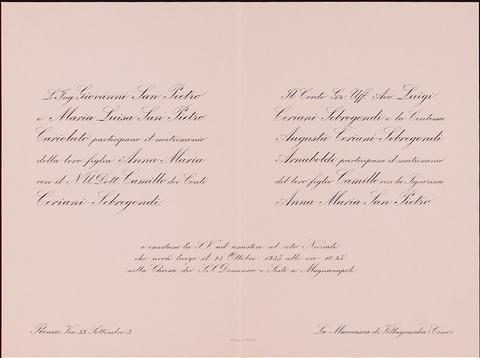 L'Ing. Giovanni San Pietro
e Maria Luisa San Pietro
Cariolato partecipano il matrimonio
della loro figlia Anna Maria
con il N.U. Dott. Camillo dei Conti
Ceriani Sebregondi.
Il Conte Gr. Uff. Avv. Luigi
Ceriani Sebregondi e la Contessa
Augusta Ceriani Sebregondi
Arnaboldi partecipano il matrimonio
del loro figlio Camillo con la Signorina
Anna Maria San Pietro.
e invitano la S.V. ad assistere al rito Nuziale
che avrà luogo il 23 Ottobre 1935 alle ore 10,45
nella Chiesa dei S.S. Domenico e Sisto a Magnanapoli
Roma, Via XX Settembre 3
La Mucciasca di Villaguardia (Como)